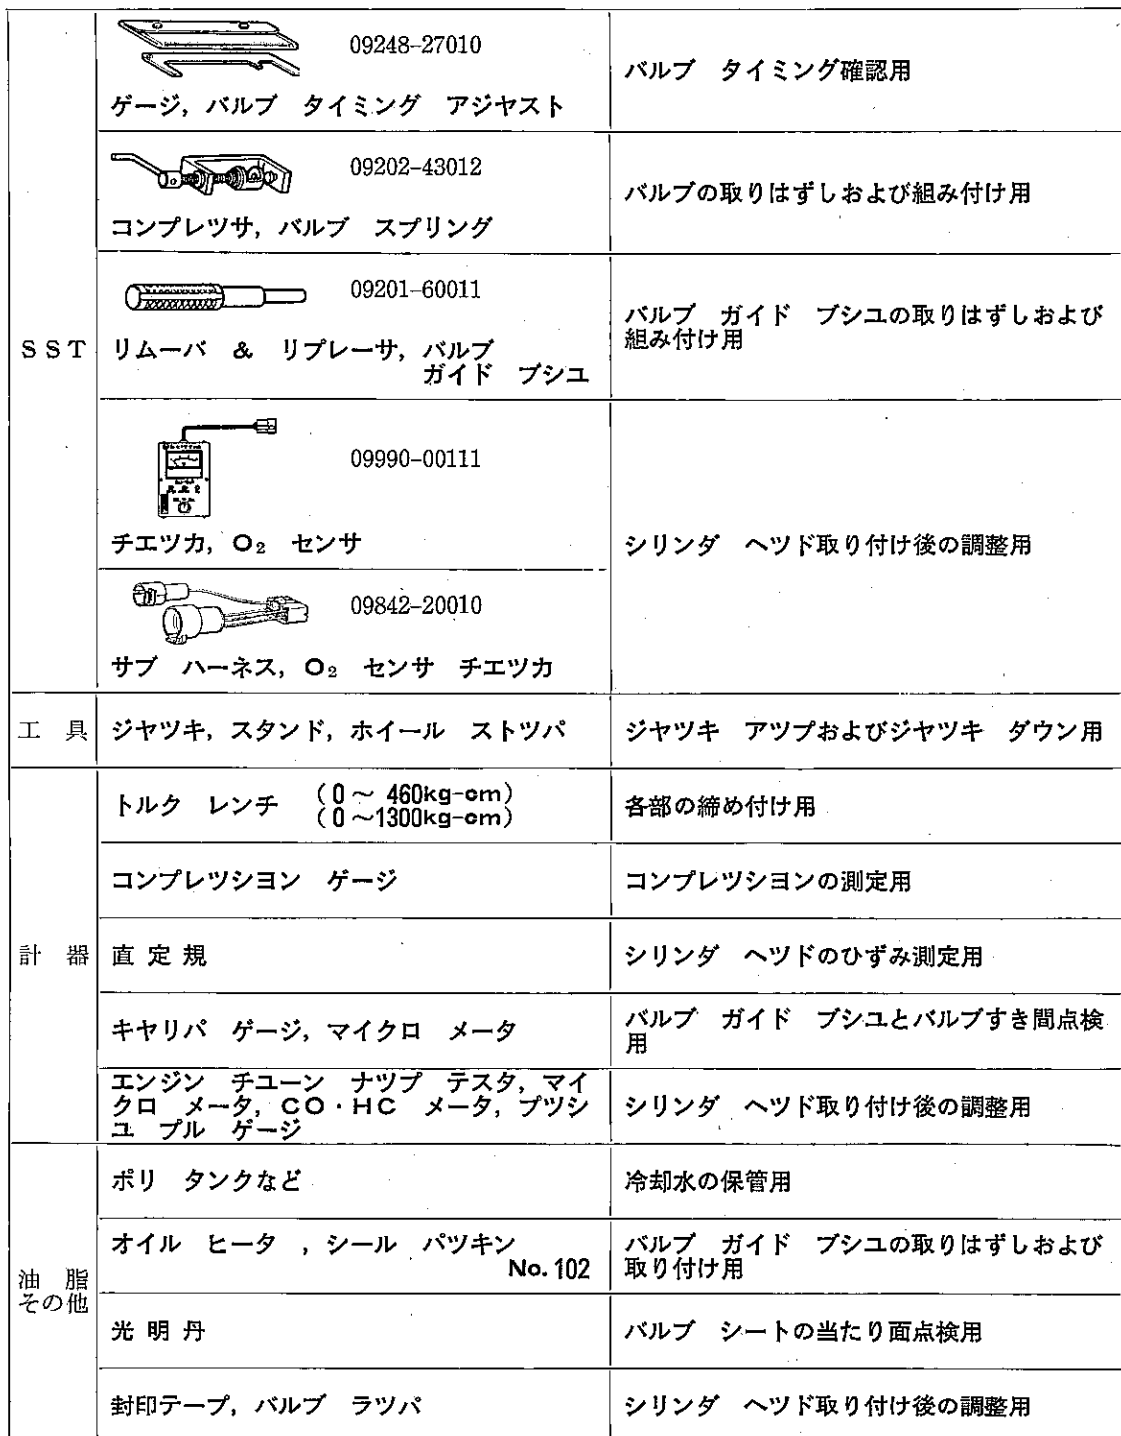 09248-27010
ゲージ, バルブ タイミング アジヤスト
バルブ タイミング確認用
09202-43012
コンプレツサ, バルブ スプリング
バルブの取りはずしおよび組み付け用
SST
09201-60011
リムーバ & リプレーサ, バルブ
ガイド ブシユ
バルブ ガイド ブシユの取りはずしおよび
組み付け用
09990-00111
チエツカ, O₂ センサ
09842-20010
サブ ハーネス, O₂ センサ チエツカ
シリンダ ヘツド取り付け後の調整用
工 具
ジヤツキ, スタンド, ホイール ストツパ
ジヤツキ アツプおよびジヤツキ ダウン用
計 器
トルク レンチ (0~ 460kg-cm)
(0~1300kg-cm)
各部の締め付け用
コンプレツシヨン ゲージ
コンプレツシヨンの測定用
直 定 規
シリンダ ヘツドのひずみ測定用
キヤリパ ゲージ, マイクロ メータ
バルブ ガイド ブシユとバルブすき間点検
用
エンジン チユーン ナツプ テスタ, マイ
クロ メータ, CO・HC メータ, プツシ
ユ プル ゲージ
シリンダ ヘツド取り付け後の調整用
油 脂
その他
ポリ タンクなど
冷却水の保管用
オイル ヒータ , シール パツキン
No. 102
バルブ ガイド ブシユの取りはずしおよび
取り付け用
光 明 丹
バルブ シートの当たり面点検用
封印テープ, バルブ ラツパ
シリンダ ヘツド取り付け後の調整用